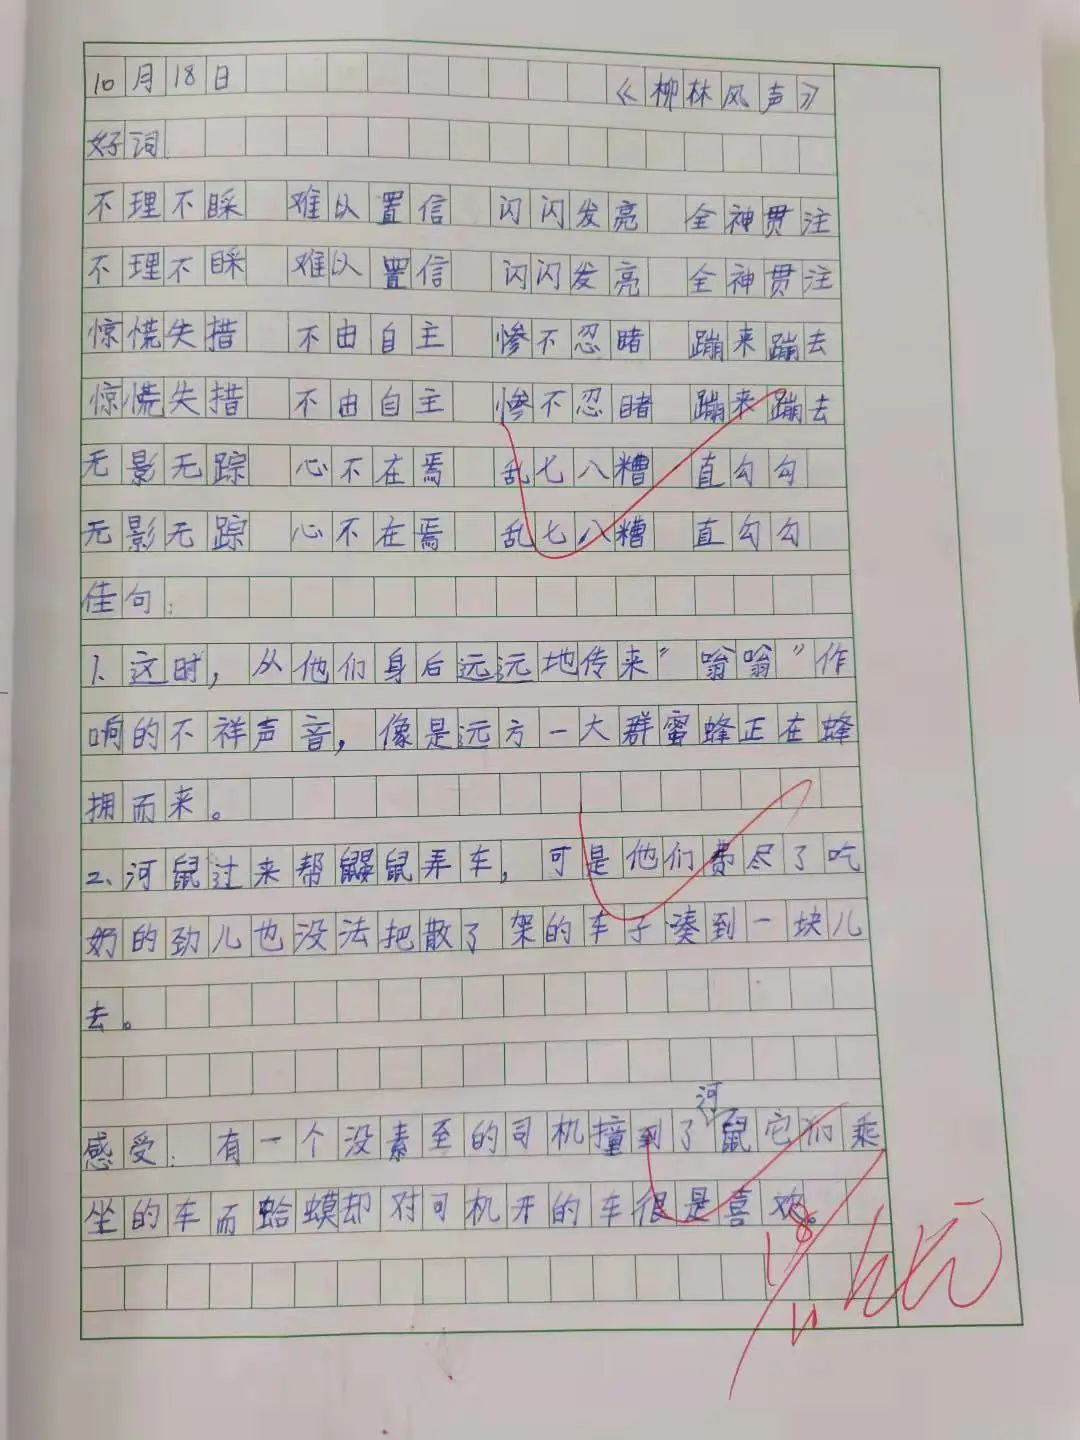 10月18日 《柳林风声》
好词
不理不睬 难以置信 闪闪发亮 全神贯注
不理不睬 难以置信 闪闪发亮 全神贯注
惊慌失措 不由自主 惨不忍睹 蹦来蹦去
惊慌失措 不由自主 惨不忍睹 蹦来蹦去
无影无踪 心不在焉 乱七八糟 直勾勾
无影无踪 心不在焉 乱七八糟 直勾勾
佳句：
1、这时，从他们身后远远地传来"嗡嗡"作
响的不祥声音，像是远方一大群蜜蜂正在蜂
拥而来。
2、河鼠过来帮鼹鼠弄车，可是他们费尽了吃
奶的劲儿也没法把散了架的车子凑到一块儿
去。
感受：有一个没素至的司机撞到了河鼠它们乘
坐的车而蛤蟆却对司机开的车很是喜欢。